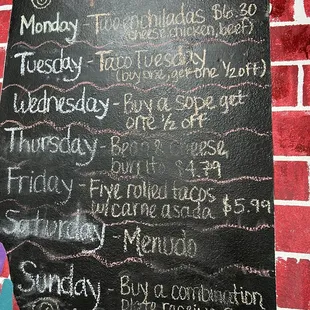 Monday - Two enchiladas $6.30
(cheese, chicken, beef)
Tuesday - Taco Tuesday
(buy one, get one 1/2 off)
Wednesday - Buy a sope get
one 1/2 off
Thursday - Bean & cheese
burrito $4.79
Friday - Five rolled tacos
w/carne asada $5.99
Saturday - Menudo
Sunday - Buy a combination
Plate receive